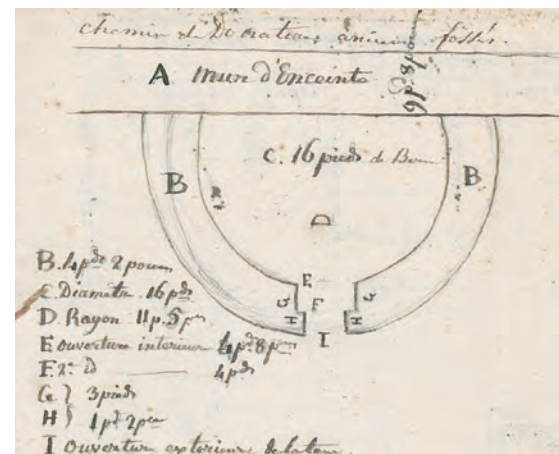 chemin et Décorateur ancien fossés.
A mur d'Enceinte
C. 16 pieds de
B
B
D
E
G F G
H H
I
B. 4 pds 2 pouces
C. Diametre. 16 pds
D. Rayon 11 p. 5 pces
E ouverture interieur 4 pds 8 pces
F. 2e id 4 pds
G } 3 pieds
H } 1 pd 2 pces
I ouverture exterieur de la tour.